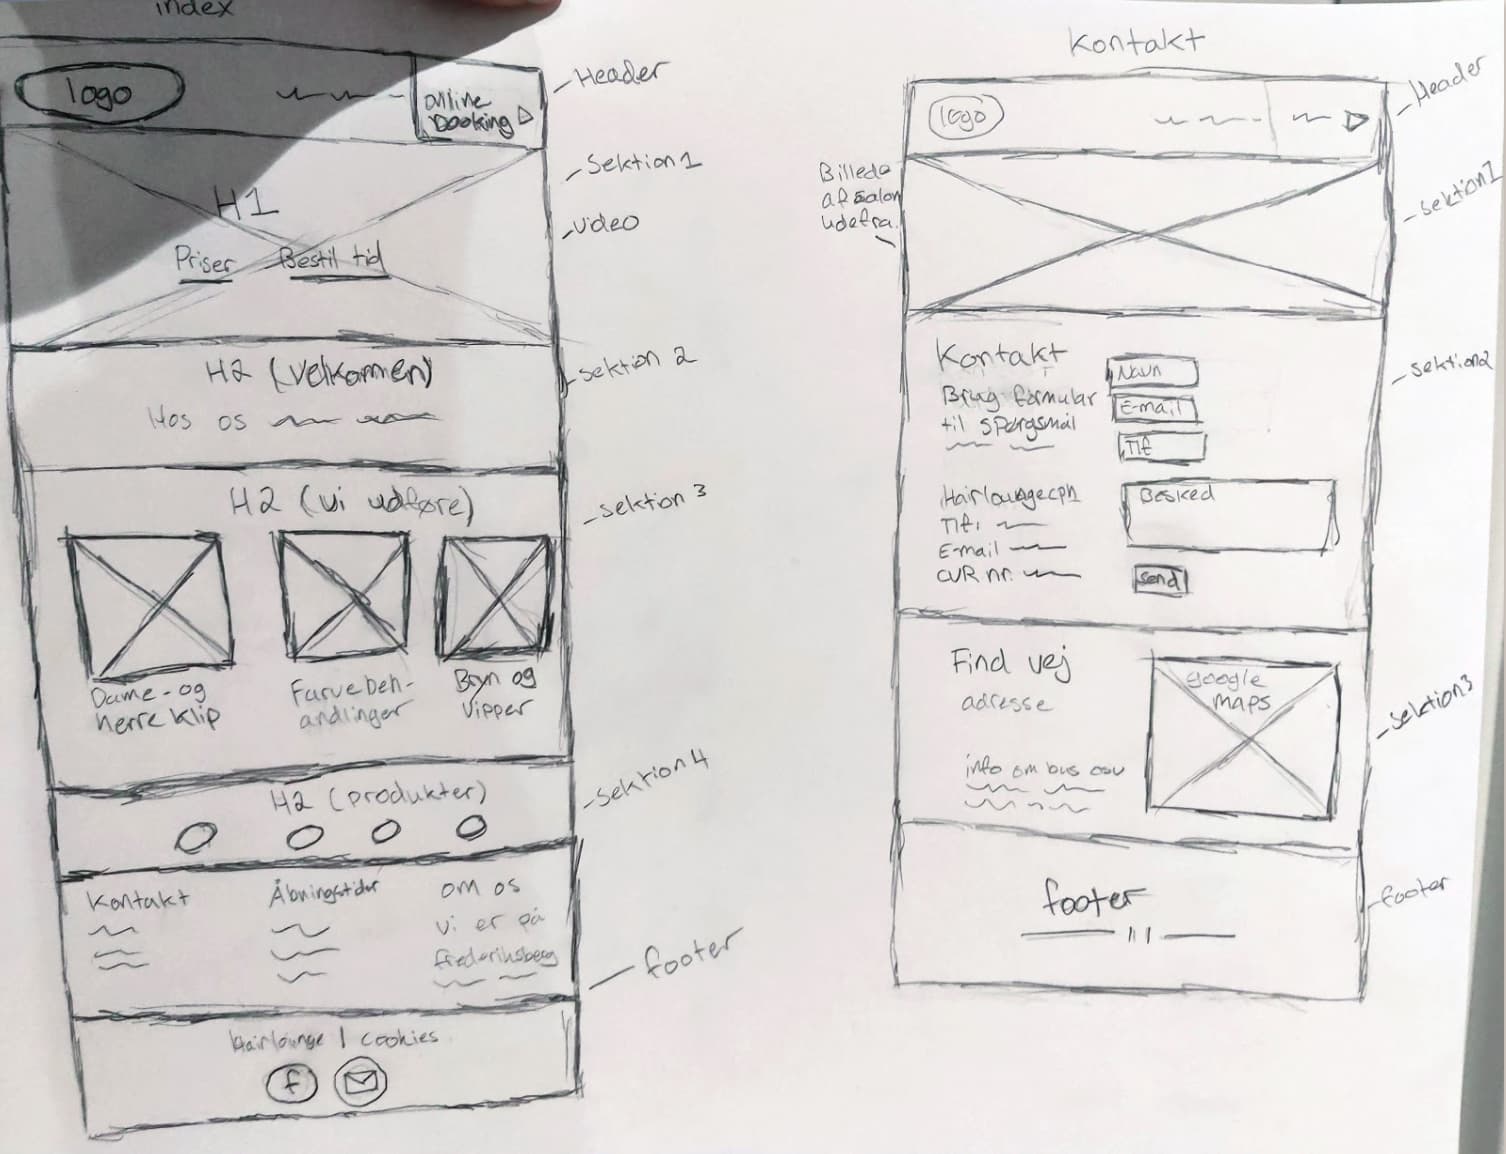 index
logo
online
booking
Header
Sektion 1
H1
video
Priser
Bestil tid
H2 (velkommen)
sektion 2
Hos os
H2 (vi udføre)
sektion 3
Dame-og
herre klip
Farvebeh-
andlinger
Bryn og
vipper
sektion 4
H2 (produkter)
Kontakt
Åbningstider
om os
vi er på
frederiksberg
footer
Hairlounge | cookies
f
Kontakt
logo
Header
Billede
af salon
udefra.
sektion 1
Kontakt
Brug formular
til spørgsmål
Navn
E-mail
Tlf
sektion 2
Hairloungecph
Tlf:
E-mail
CVR nr.
Besked
send
Find vej
adresse
info om bus osv
google
maps
sektion 3
footer
footer